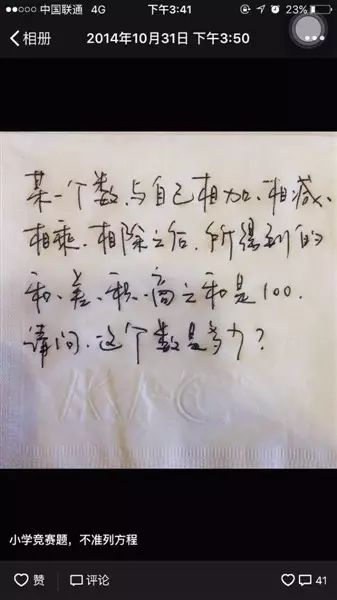 中国联通 4G 下午3:41 23%
相册 2014年10月31日 下午3:50
某一个数,与自己相加、相减、
相乘、相除之后,所得到的
和、差、积、商之和是100.
请问、这个数是多少?
MAC
小学竞赛题，不准列方程
赞 评论 41